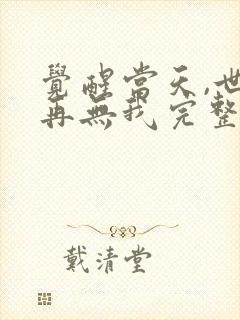 覺醒當天,世
再無我完整
戴清堂